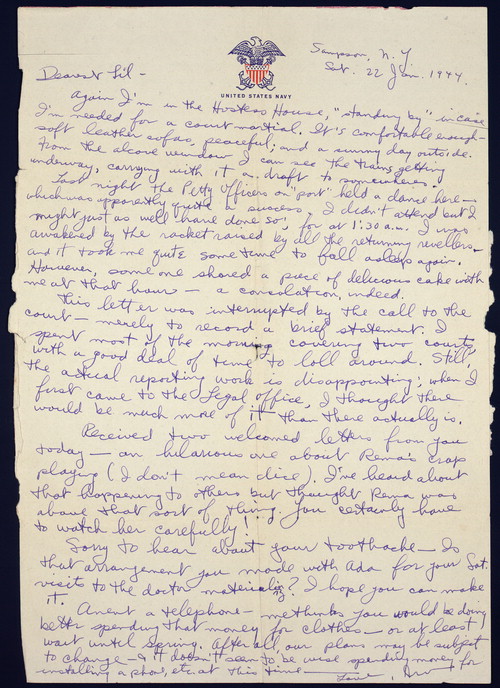 Sampson, N.Y
Sat. 22 Jan. 1944.
UNITED STATES NAVY
Dearest Lil -
Again I'm in the Hostess House, "standing by" in case
I'm needed for a court martial. It's comfortable enough -
soft leather sofas, peaceful; and a sunny day outside.
From the alcove window I can see the trains getting
underway, carrying with it a draft to somewhere.
Last night the Petty Officers on "port" held a dance here -
which was apparently quite a success, I didn't attend but I
might just as well have done so, for at 1:30 a.m. I was
awakened by the racket raised by all the returning revellers -
and it took me quite some time to fall asleep again.
However, someone shared a piece of delicious cake with
me at that hour - a consolation, indeed.
This letter was interrupted by the call to the
court - merely to record a brief statement. I
spent most of the morning covering two courts,
with a good deal of time to loll around. Still,
the actual reporting work is disappointing; when I
first came to the Legal office, I thought there
would be much more of it than there actually is.
Received two welcomed letters from you
today - an hilarious one about Rena's crap
playing (I don't mean dice). I've heard about
that happening to others but thought Rena was
above that sort of thing. You certainly have
to watch her carefully!
Sorry to hear about your toothache - Is
that arrangement you made with Ada for your Sat.
visits to the doctor materializing? I hope you can make
it.
Anent a telephone - methinks you would be doing
better spending that money for clothes - or at least
wait until Spring. After all, our plans may be subject
to change - & it doesn't seen to be wise spending money for
installing a phone, etc. at this time -
Love,